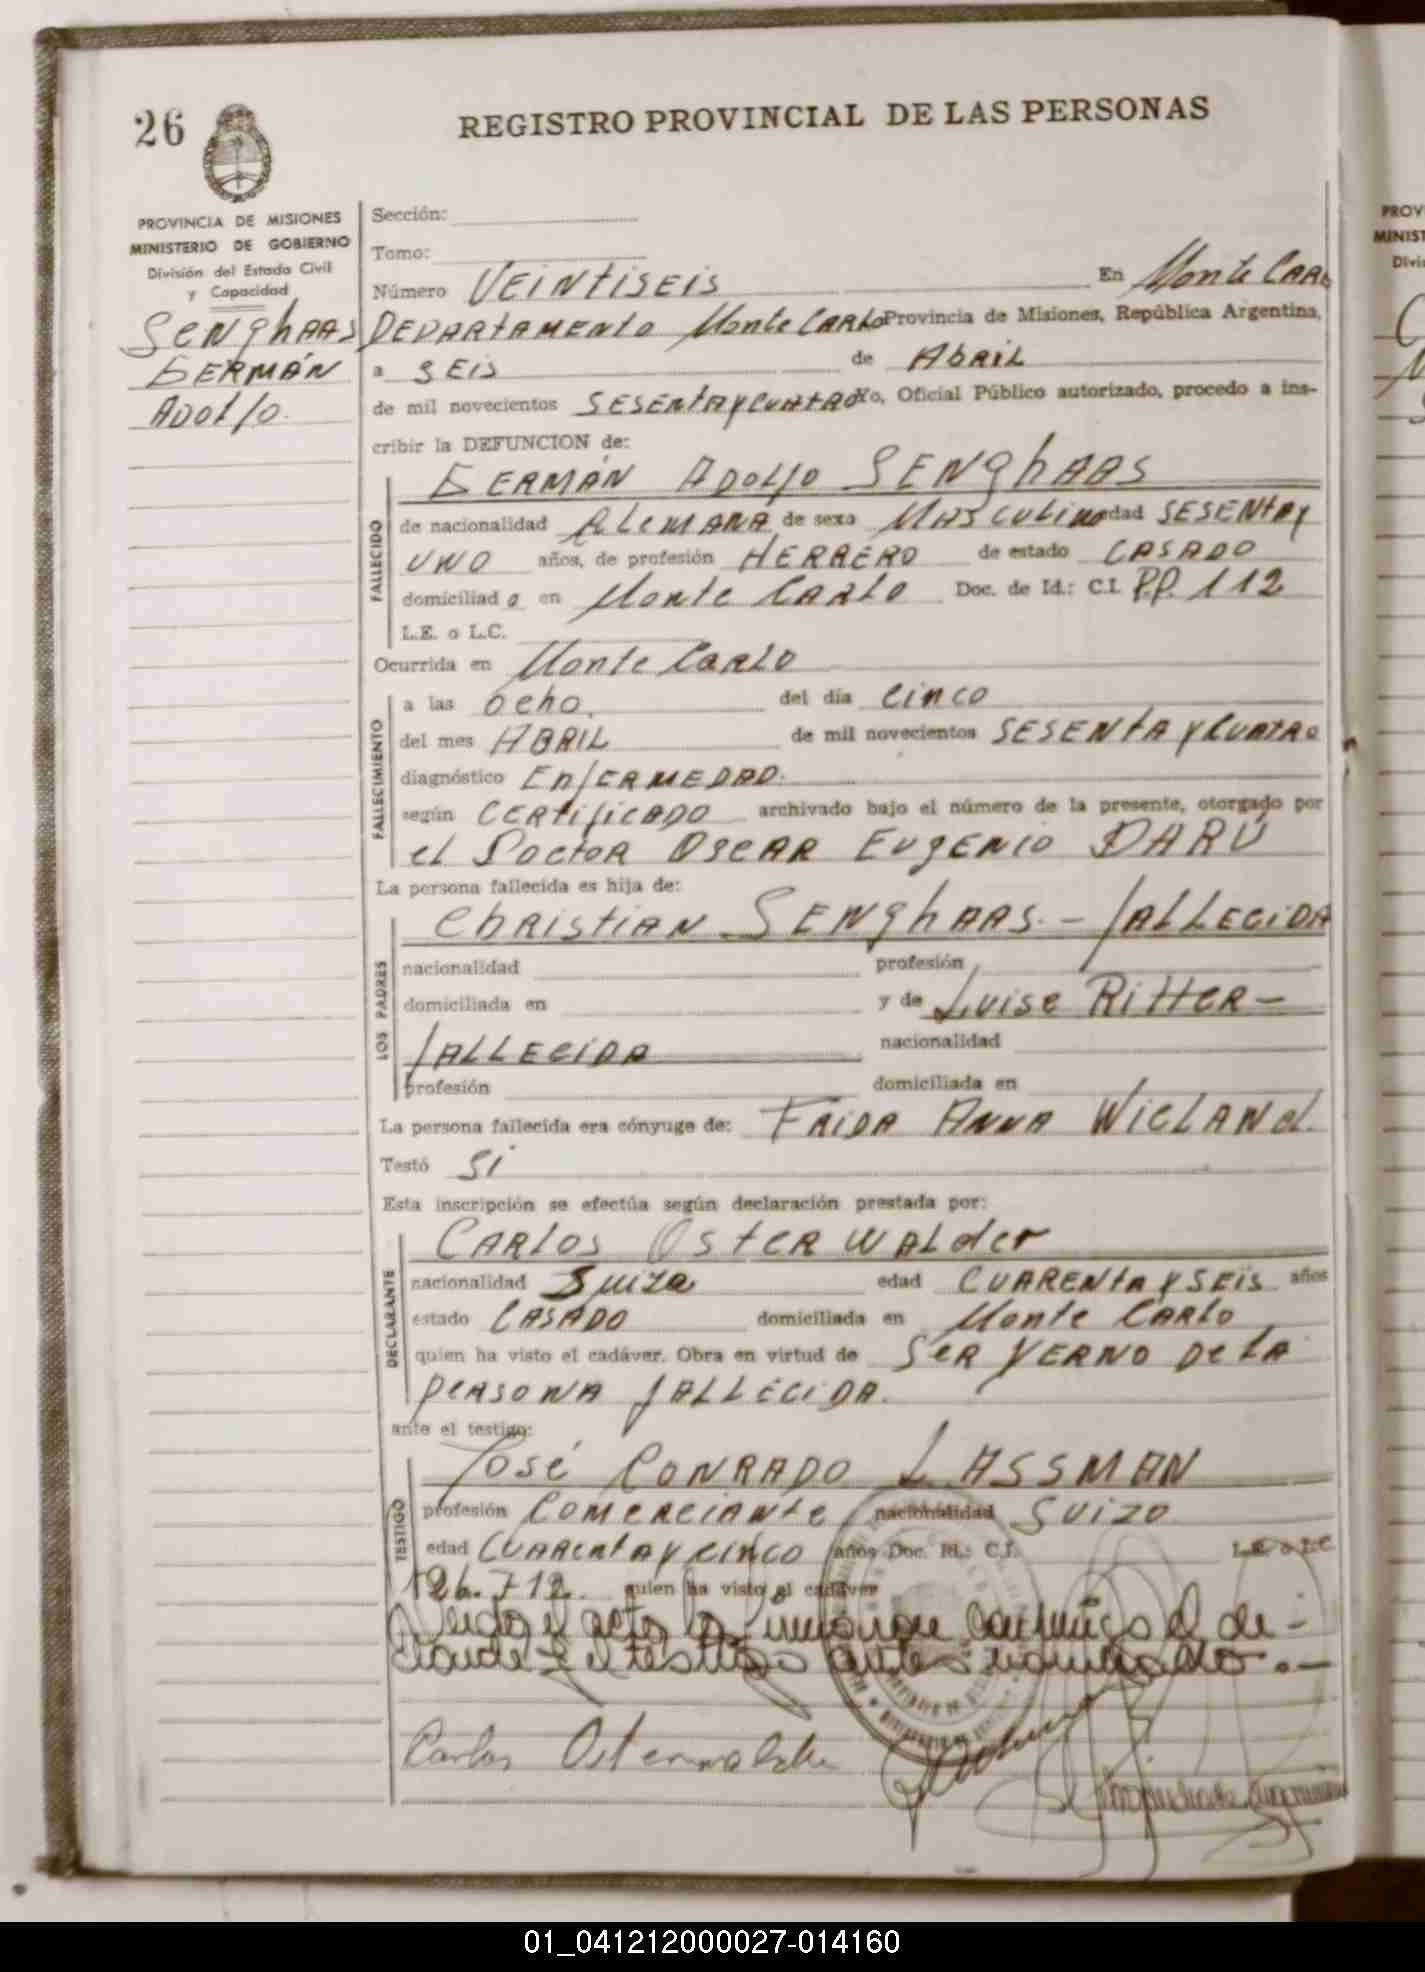 26
REGISTRO PROVINCIAL DE LAS PERSONAS
PROVINCIA DE MISIONES
MINISTERIO DE GOBIERNO
División del Estado Civil
y Capacidad
SENghAAS
GERMÁN
ADOLfO.
Sección:
Tomo:
Número VEINtiSEIS En Monte CARLo
DEPARtAMENto Monte CARLo Provincia de Misiones, República Argentina,
a SEIS de AbRIL
de mil novecientos SESENtAyCUAtRO Yo, Oficial Público autorizado, procedo a ins-
cribir la DEFUNCION de:
FALLECIDO
GERMÁN ADOLfO SENghAAS
de nacionalidad ALEMANA de sexo MASCULINO edad SESENtAy
UNO años, de profesión HERRERO de estado CASADO
domiciliado en Monte CARLO Doc. de Id.: C.I. P.P. 112
L.E. o L.C.
Ocurrida en Monte CARLO
FALLECIMIENTO
a las OCHO. del día CINCO
del mes ABRIL de mil novecientos SESENTA y CUATRO
diagnóstico ENfERMEDAD.
según CERtifICADO archivado bajo el número de la presente, otorgado por
el DoctoR OSCAR EUgENIO DARÚ
La persona fallecida es hija de:
LOS PADRES
ChRistiAN SENghAAS. - fALLECIDA
nacionalidad profesión
domiciliada en y de LUISE RIttER -
fALLECIDA nacionalidad
profesión domiciliada en
La persona fallecida era cónyuge de: FRIDA ANNA WIELANd.
Testó SI
Esta inscripción se efectúa según declaración prestada por:
DECLARANTE
CARLOS OSTERWALdER
nacionalidad Suiza edad CUARENtA y SEIS años
estado CASADO domiciliada en Monte CARLO
quien ha visto el cadáver. Obra en virtud de SER YERNO DE LA
PERSONA fALLECIDA.
ante el testigo:
TESTIGO
JOSÉ CONRADO LASSMAN
profesión COMERCIANtE nacionalidad SUIZO
edad CUARENtA y CINCO años Doc. Id.: C.I. L.E. o L.C.
126.712. quien ha visto el cadáver
Leida el acta la firman conmigo el de-
clarante y el testigo antes nombrado.-
Carlos Osterwalder
PROV
MINIST
Divi
01_041212000027-014160